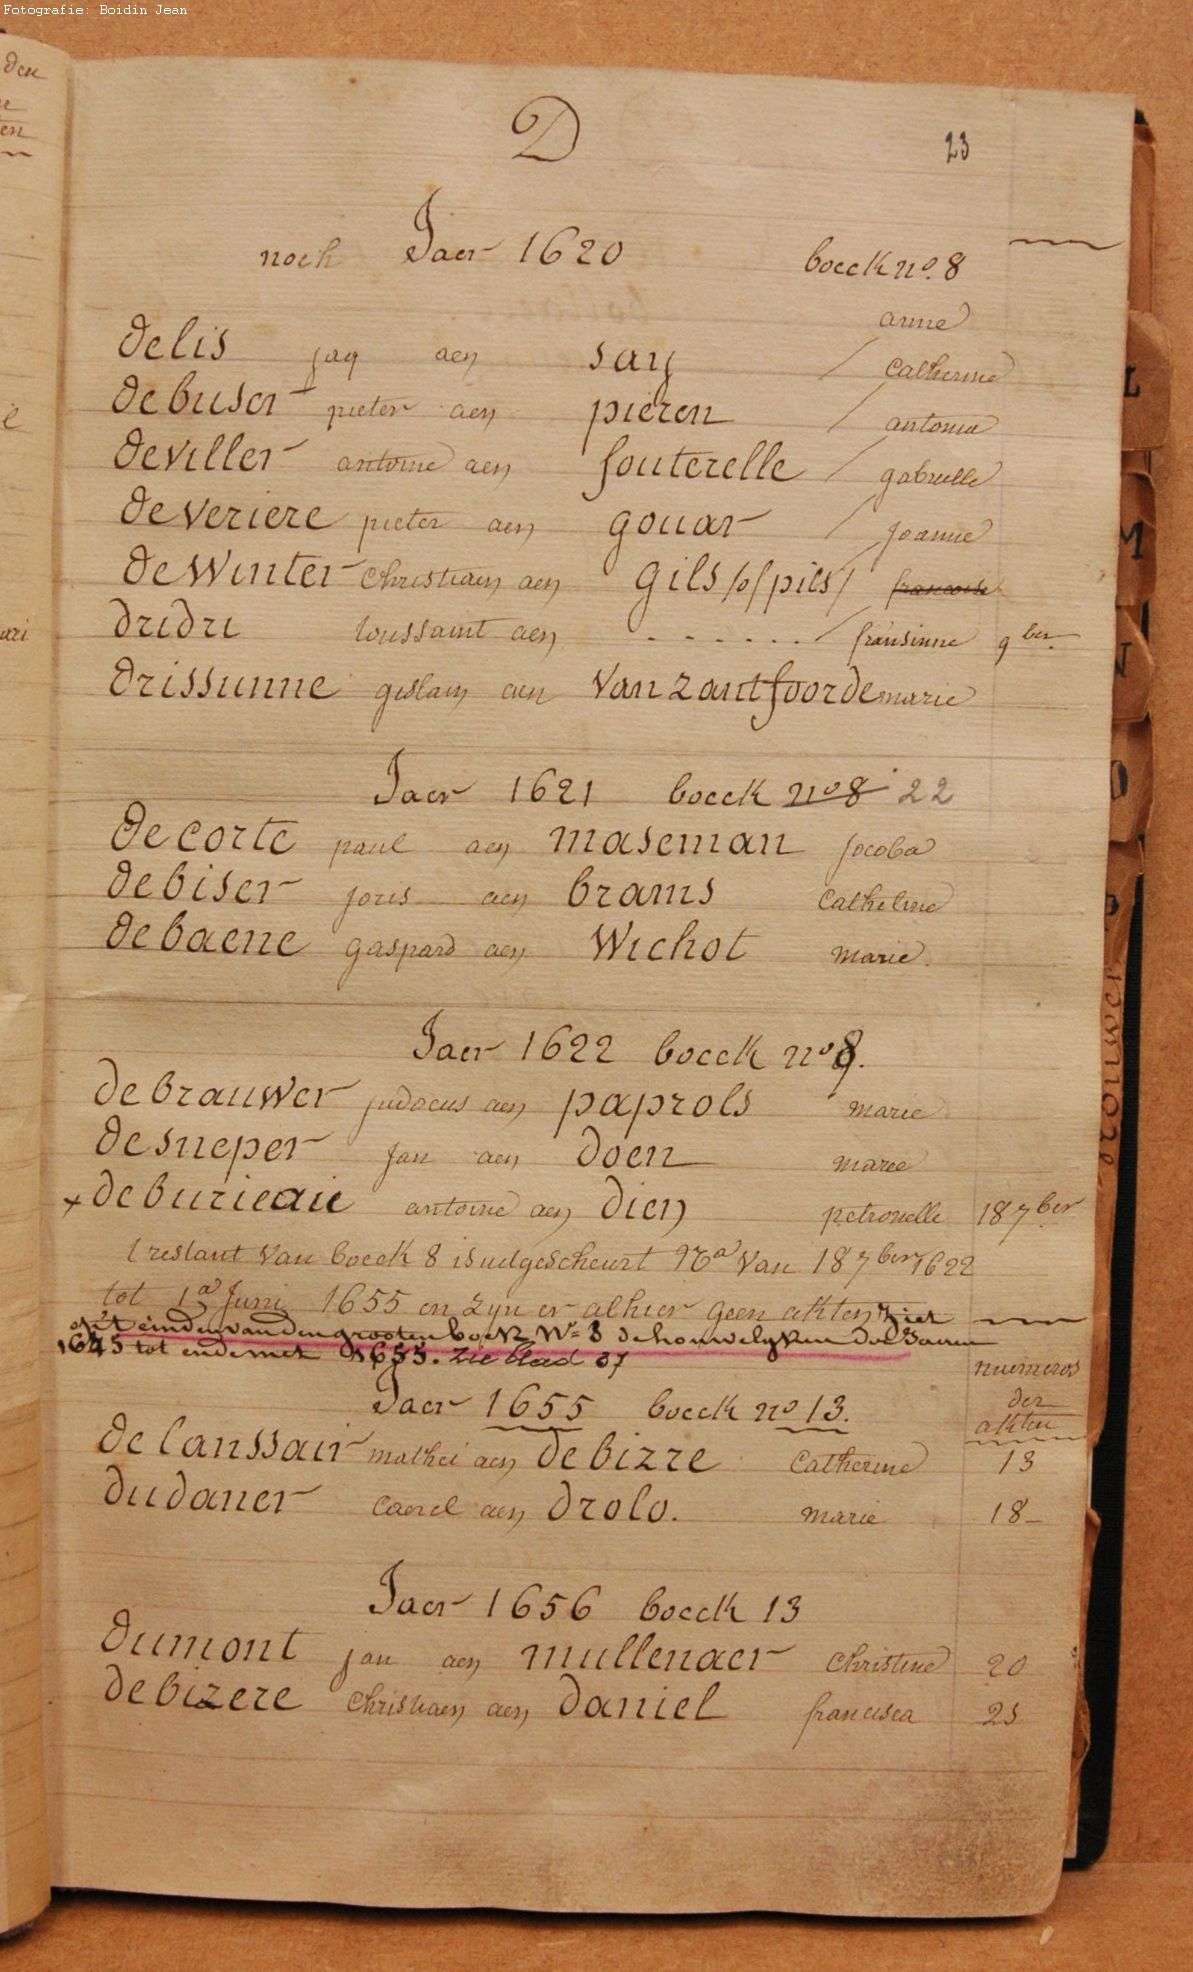 Fotografie: Boidin Jean
D
23
noch Jaer 1620 boeck no. 8
anne
delis jaq aen say / catherine
debuser pieter aen pieren / antonia
deviller antoine aen fouterelle / gabrielle
deveriere pieter aen gouar / joanne
dewinter christiaen aen gils /of pils/ francoise
dridri toussaint aen - - - - - - - fransinne 9ber
drissunne gislain aen van zantfoorde marie
Jaer 1621 boeck no 8 22
decorte paul aen maseman jocoba
debiser joris aen brams catheline
debaene gaspard aen wichot marie
Jaer 1622 boeck no 8.
debrauwer judocus aen paprols marie
desneper jan aen doen marie
x deburieaie antoine aen dien petronelle 18 7ber
t restant van boeck 8 is uitgescheurt Na van 18 7ber 1622
tot 1a Juni 1655 en zyn er alhier geen akten ziet
op't einde van den grooten boek No 3 schouwelyken der Jaeren
1645 tot ende met 1655. zie blad 37
numeros
der
akten
Jaer 1655 boeck no 13.
delanssair mathei aen debizre catherine 13
dudaner caerel aen drolo. marie 18
Jaer 1656 boeck 13
dumont jan aen mullenaer christine 20
debizere christiaen aen daniel francisca 25
L
M
N
O
P
brouwer